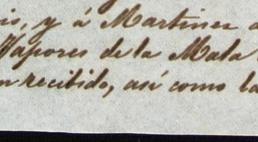 is, y á Martinez
Vapores de la Mala
n recibido, así como la